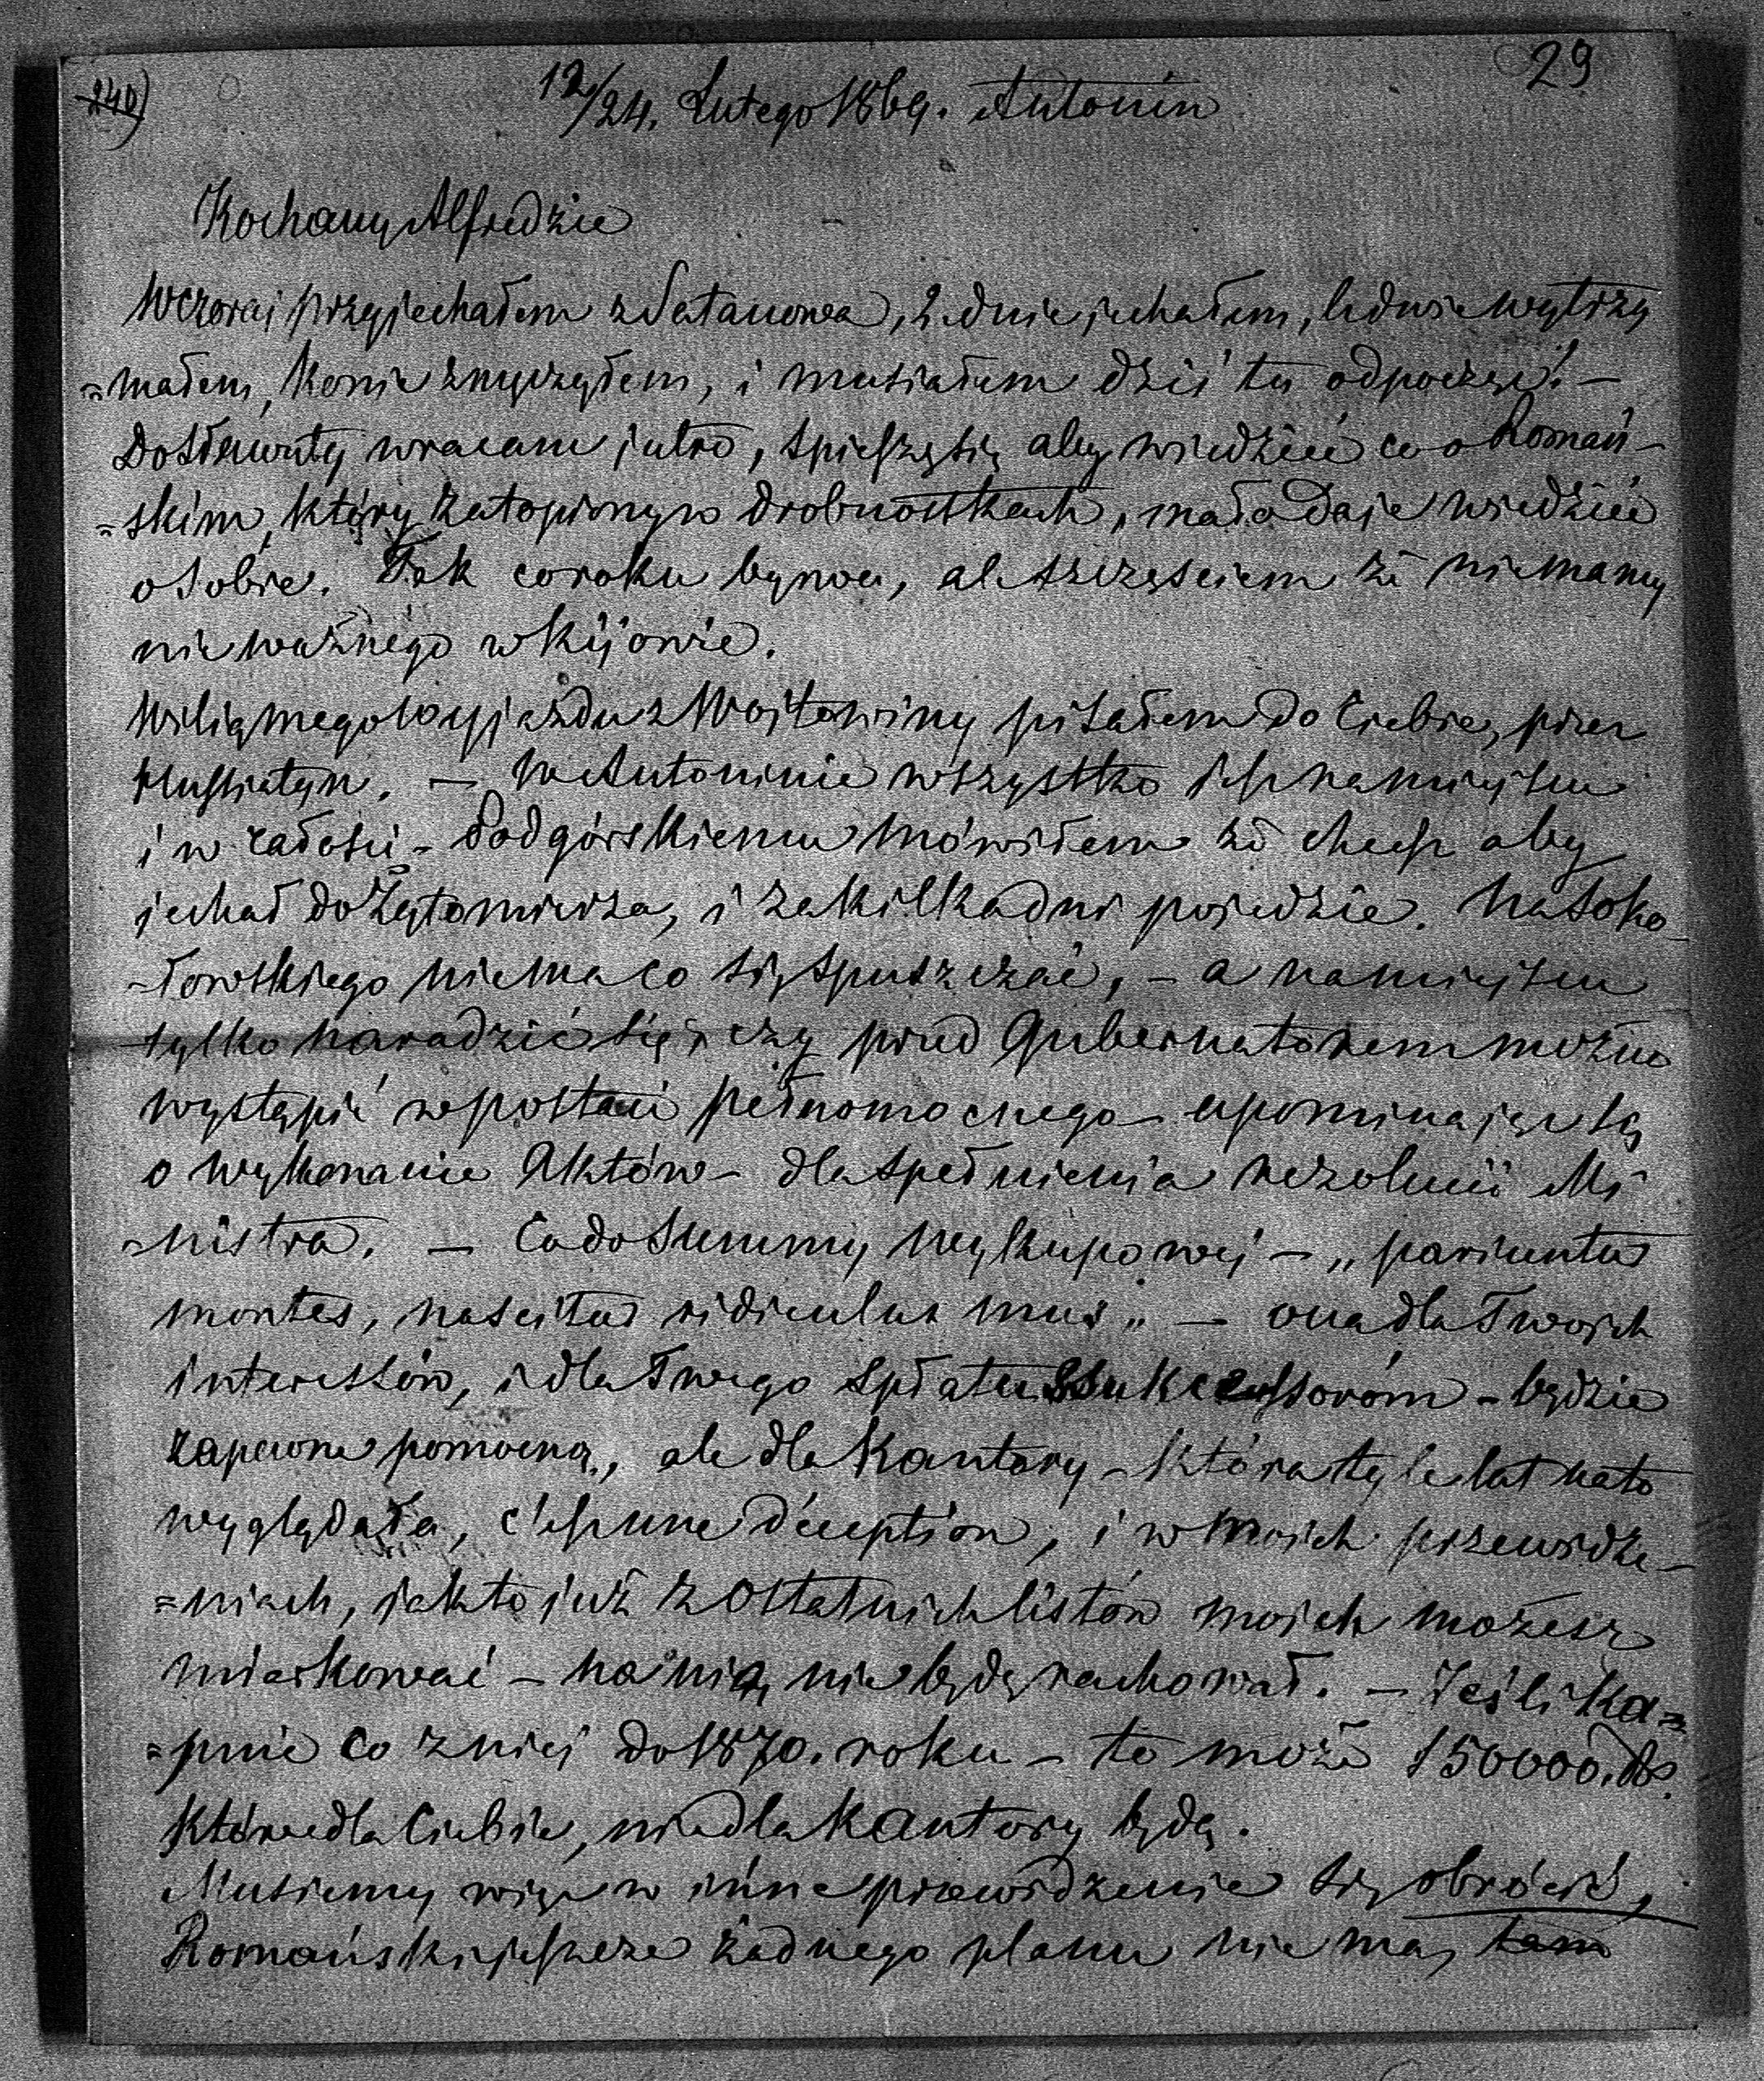 240)
29
12/24. Lutego 1869. Antonin
Kochany Alfredzie
Wczoraj przyjechałem z Satanowa, 2. dnie jechałem, ledwie wytrzy
=małem, konie zmęczyłem, i musiałem dziś tu odpocząć. —
Do Sławuty wracam jutro, spieszę się aby wiedzieć co o Romań-
=skim, który zatopiony w drobnostkach, mało daje wiedzieć
o sobie. Tak co roku bywa, ale szczęściem że nie mamy
nic ważnego w Kijowie.
Wilią mego wyjazdu z Wojtowiny pisałem do Ciebie, przez
Husiatyn. — W Antoninie wszystko jest na miejscu
i w całości – Podgórskiemu mówiłem że chcesz aby
jechał do Żytomierza, i za kilka dni pojedzie. Na Soko-
-łowskiego niema co się spuszczać, – a na miejscu
tylko naradzić się, czy przed Gubernatorem można
wystąpić w postaci pełnomocnego – upominając się
o wykonanie Aktów – dla spełnienia rezolucii Mi
=nistra. — Co do Summy wykupowej – „pariuntur
montes, nascitur ridiculus mus„ — ona dla Twoich
interessów, i dla Twego spłatu Sukcessorom – będzie
zapewne pomocną, ale dla Kantory – która tyle lat na to
wyglądała, c'est une déception, i w moich przewidze-
=niach, jak to już z ostatnich listów moich możesz
miarkować – na nią nie będę rachował. — Jeśli ka=
=pnie co z niej do 1870. roku – to może 150000. Rs.
które dla Ciebie, nie dla Kantory będą.
Musiemy więc w inne przewidzenie się obrócić,
Romański jeszcze żadnego planu nie ma, tam